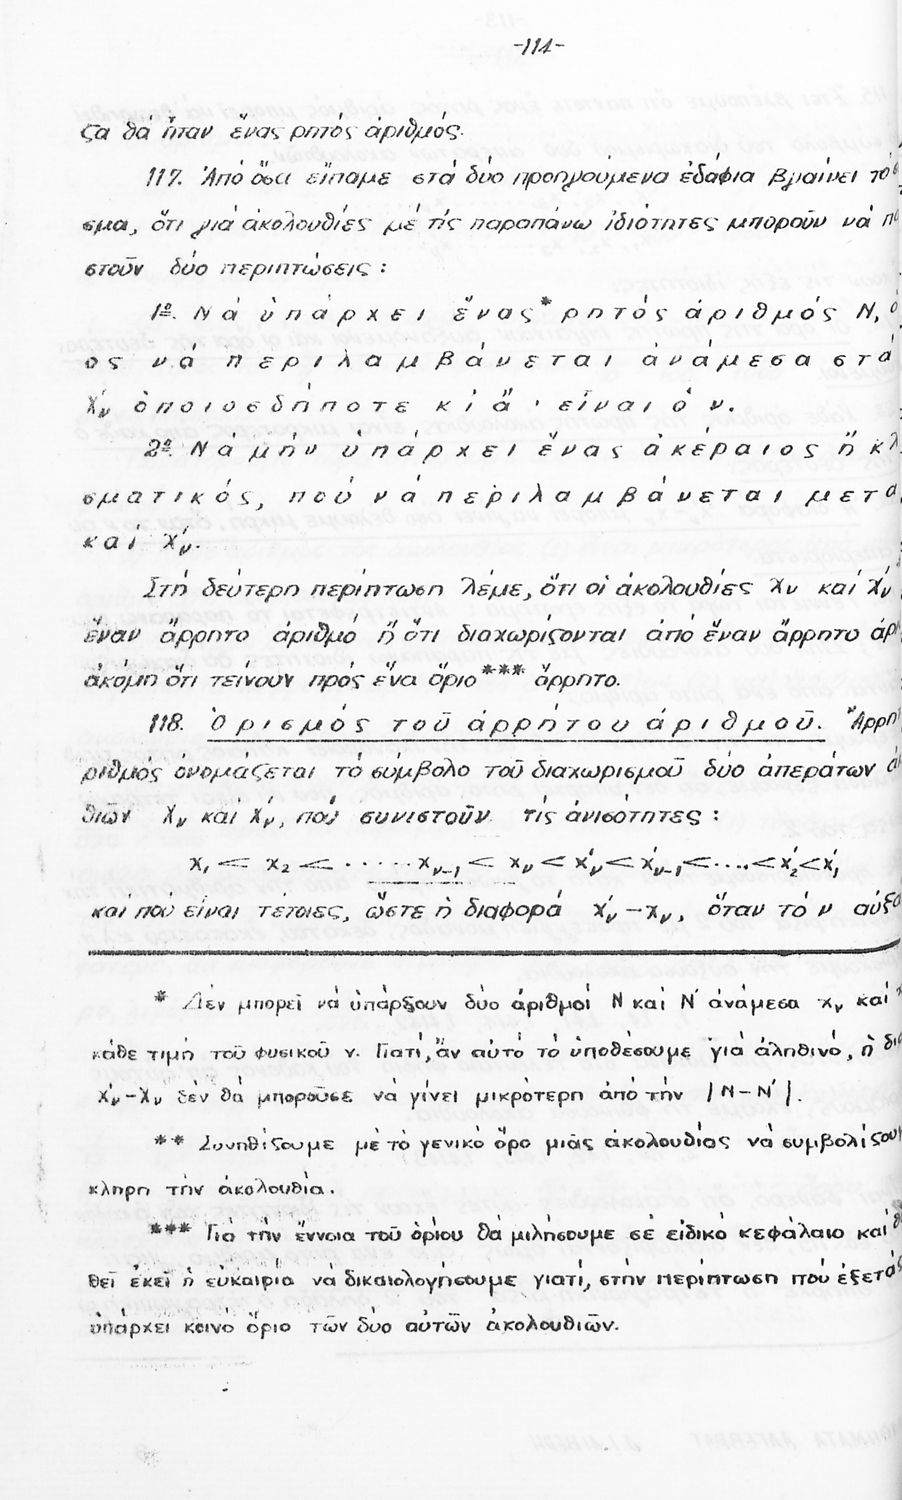 -114-
ζα θά ἦταν ἕνας ρητός ἀριθμός.
117. Ἀπό ὅσα εἴπαμε στά δύο προηγούμενα ἐδάφια βγαίνει τό
σμα, ὅτι γιά ἀκολουθίες μέ τίς παραπάνω ἰδιότητες μποροῦν νά
στοῦν δύο περιπτώσεις :
1º. Νά ὑπάρχει ἕνας* ρητός ἀριθμός Ν,
ος νά περιλαμβάνεται ἀνάμεσα στά
χ́ν ὁποιοσδήποτε κι ἄ' εἶναι ὁ ν.
2º. Νά μήν ὑπάρχει ἕνας ἀκέραιος ἤ κλ
σματικός, πού νά περιλαμβάνεται μετα
καί χ́ν.
Στή δεύτερη περίπτωση λέμε, ὅτι οἱ ἀκολουθίες χν καί χ́ν
ἕναν ἄρρητο ἀριθμό ἤ ὅτι διαχωρίζονται ἀπό ἕναν ἄρρητο ἀρ
ἀκόμη ὅτι τείνουν πρός ἕνα ὅριο*** ἄρρητο.
118. Ὁρισμός τοῦ ἀρρήτου ἀριθμοῦ. Ἄρρη
ριθμός ὀνομάζεται τό σύμβολο τοῦ διαχωρισμοῦ δύο ἀπεράτων ἀ
θιῶν χν καί χ́ν, πού συνιστοῦν τίς ἀνισότητες :
χ₁ < χ₂ < ····· χν₋₁ < χν < χ́ν < χ́ν₋₁ < .... < χ́₂ < χ́₁
καί πού εἶναι τέτοιες, ὥστε ἡ διαφορά χ́ν – χν, ὅταν τό ν αὐξα
* Δέν μπορεῖ νά ὑπάρξουν δύο ἀριθμοί Ν καί Ν΄ ἀνάμεσα χν καί
κάθε τιμή τοῦ φυσικοῦ ν. Γιατί, ἄν αὐτό τό ὑποθέσουμε γιά ἀληθινό, ἡ δια
χ́ν – χν δέν θά μποροῦσε νά γίνει μικρότερη ἀπό τήν |Ν – Ν΄|.
** Συνηθίζουμε μέ τό γενικό ὅρο μιᾶς ἀκολουθίας νά συμβολίζουμ
κληρη τήν ἀκολουθία.
*** Γιά τήν ἔννοια τοῦ ὁρίου θά μιλήσουμε σέ εἰδικό κεφάλαιο καί θ
θεῖ ἐκεῖ ἡ εὐκαιρία νά δικαιολογήσουμε γιατί, στήν περίπτωση πού ἐξετά
ὑπάρχει κοινό ὅριο τῶν δύο αὐτῶν ἀκολουθιῶν.